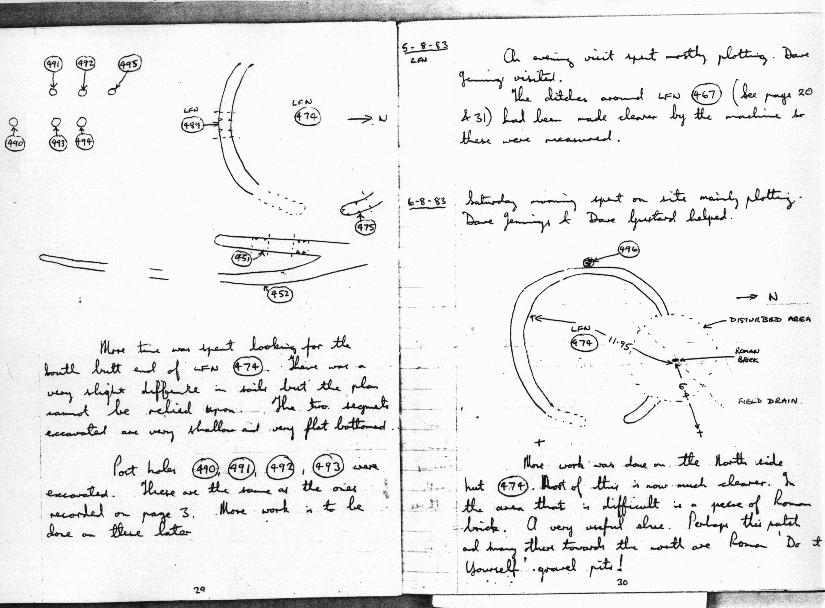 491 492 495
LFN
489
LFN
474
N
490 493 494
475
451
452
More time was spent looking for the
south butt end of LFN 474. There was a
very slight difference in soils but the plan
cannot be relied upon. The two segments
excavated are very shallow and very flat bottomed.
Post holes 490, 491, 492, 493 were
excavated. These are the same as the ones
recorded on page 3. More work is to be
done on these later
29
5-8-83
LFN
An evening visit spent mostly plotting. Dave
Jennings visited.
The ditches around LFN 467 (see page 20
& 31) had been made clearer by the machine so
these were measured.
6-8-83
Saturday morning spent on site mainly plotting.
Dave Jennings & Dave helped.
496
N
DISTURBED AREA
LFN
474
11.95
ROMAN
BRICK
FIELD DRAIN
More work was done on the North side
hut 474. Most of this is now much clearer. In
the area that is difficult is a peece of Roman
brick. A very useful clue. Perhaps this patch
and many others towards the north are Roman 'Do it
Yourself' gravel pits!
30